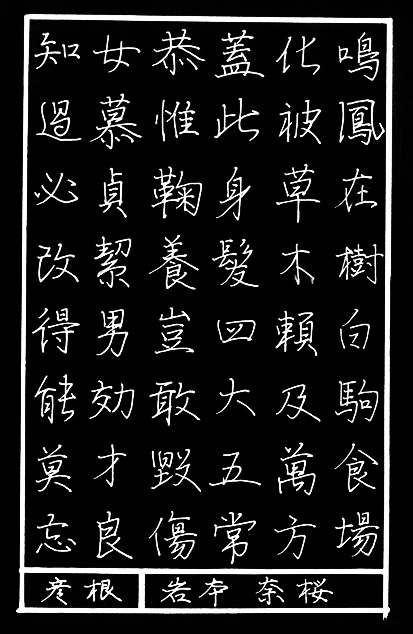 鳴鳳在樹白駒食場
化被草木頼及萬方
蓋此身髮四大五常
恭惟鞠養豈敢毀傷
女慕貞絜男効才良
知過必改得能莫忘
彦根 岩本 奈桜